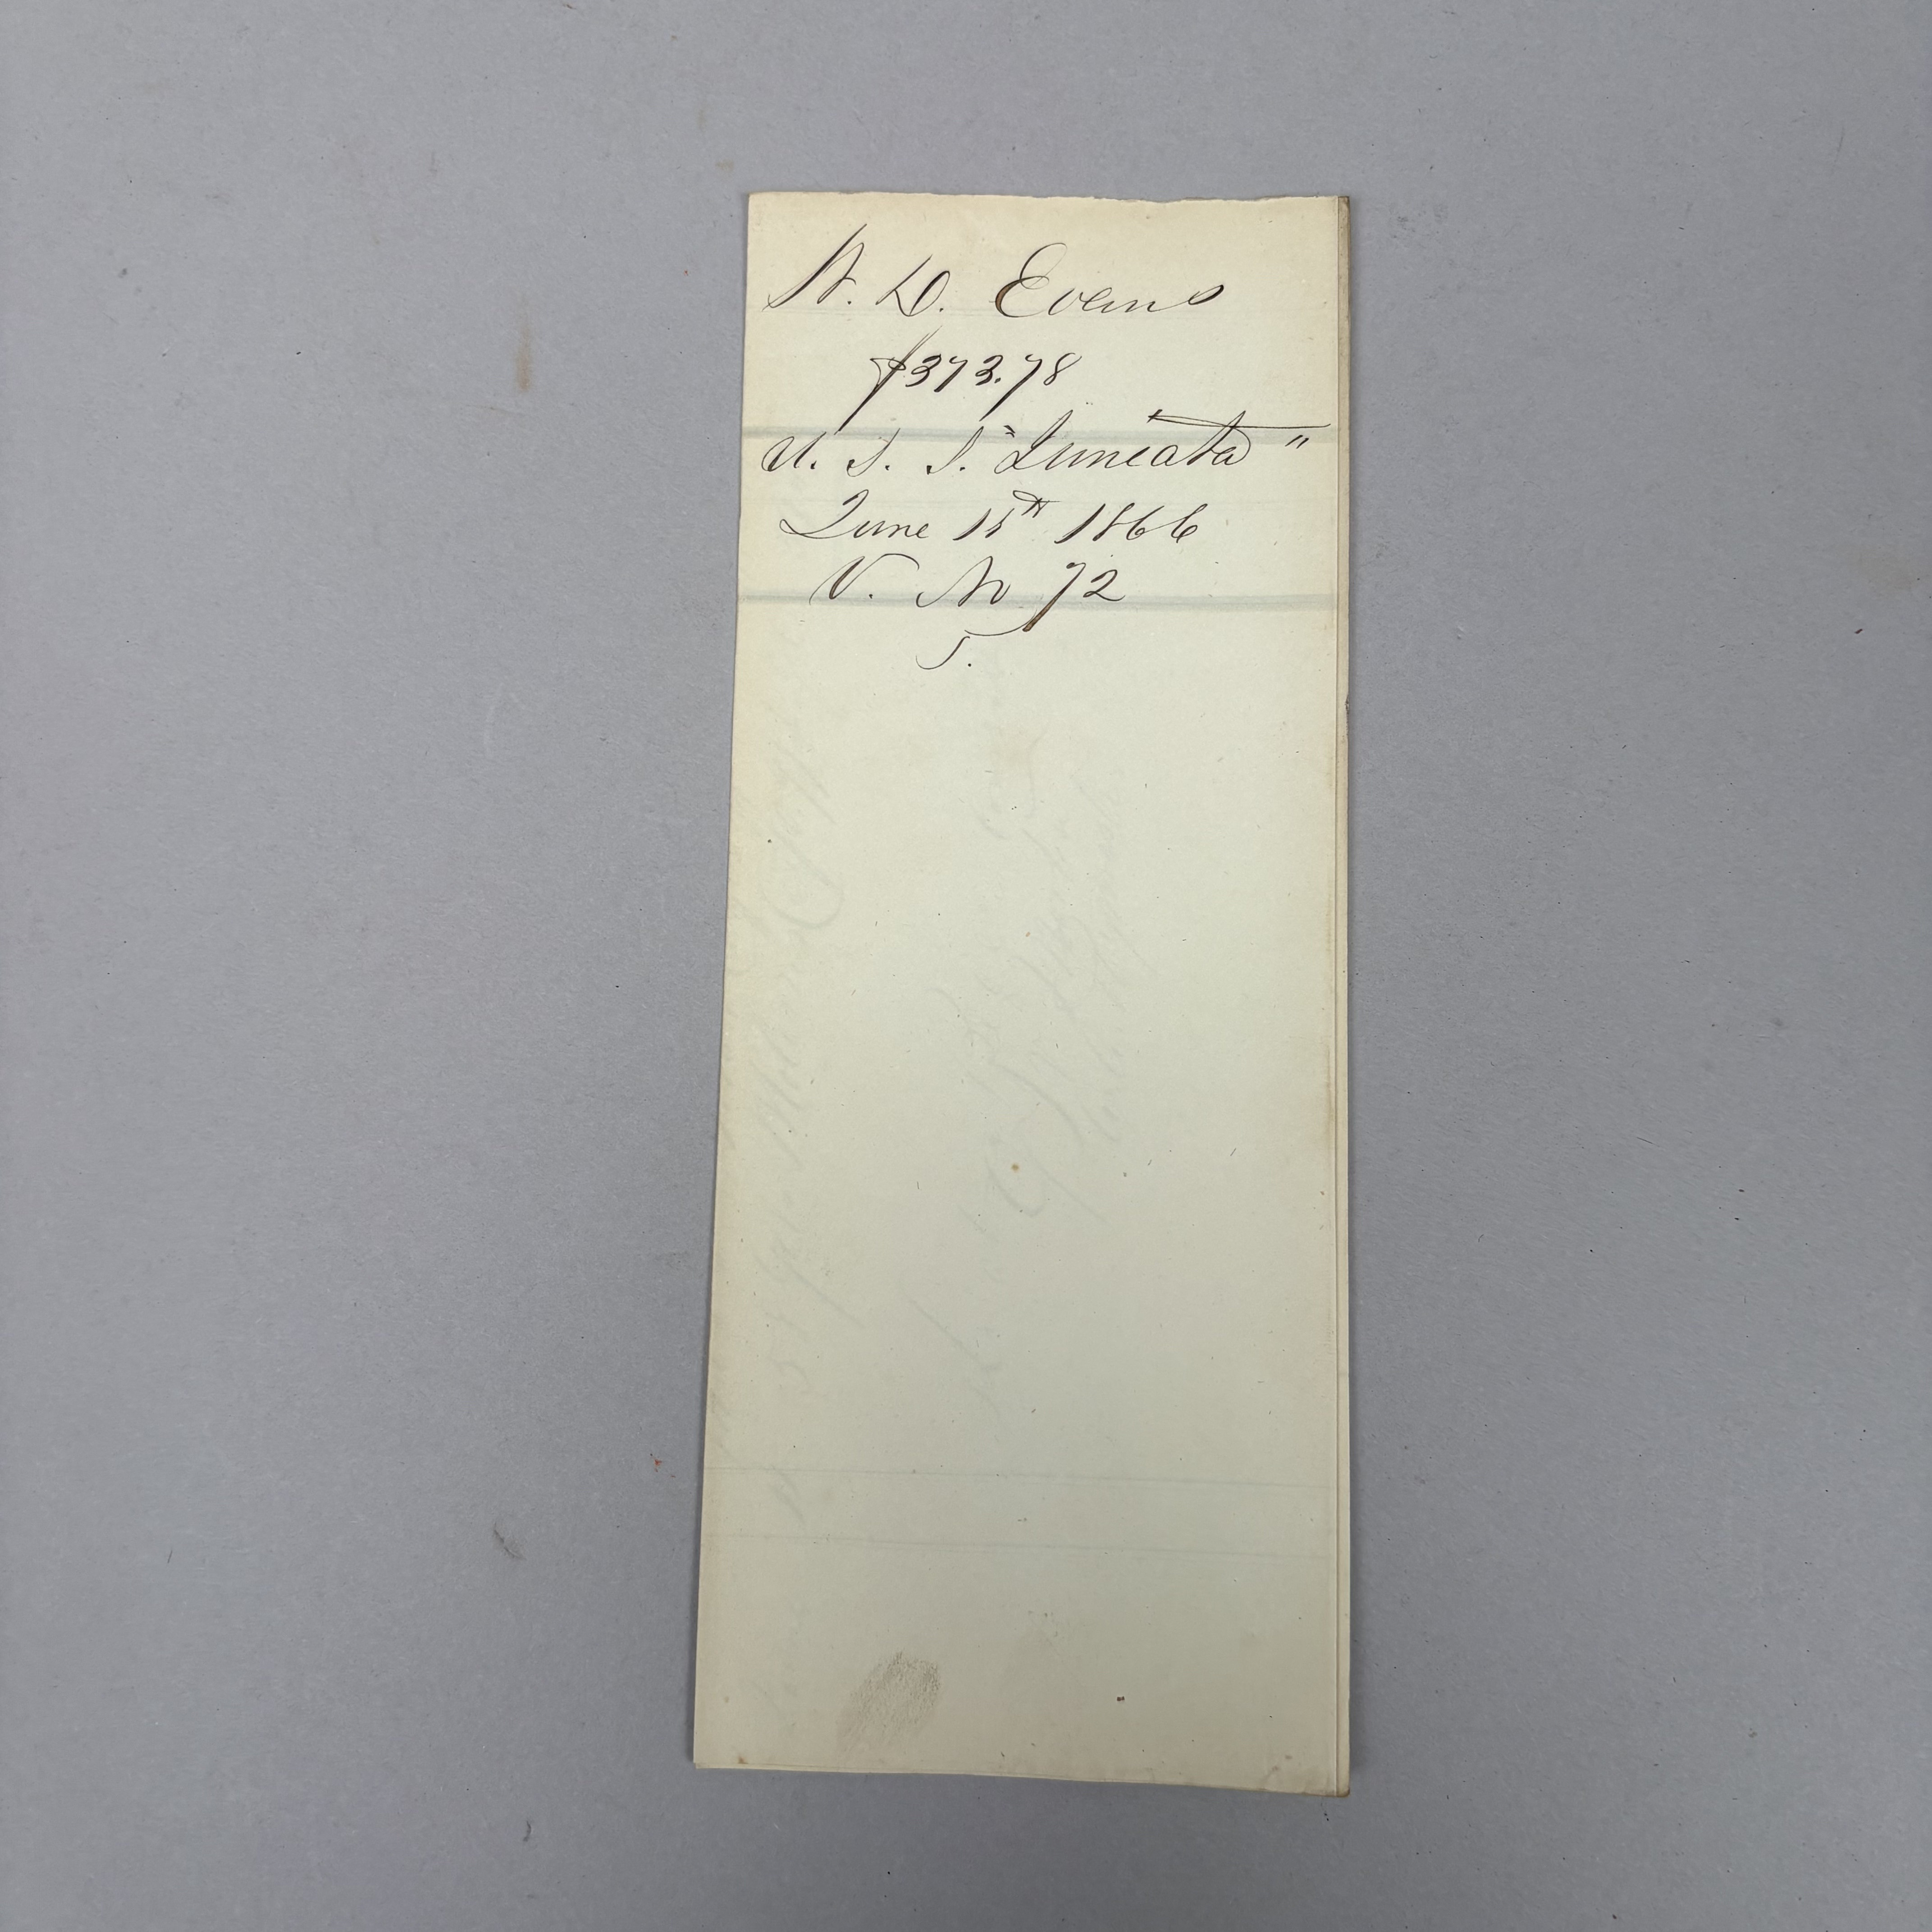 W. D. Evans
$373.78
U. S. S. "Juneata"
June 15th 1866
V. No 72
5.